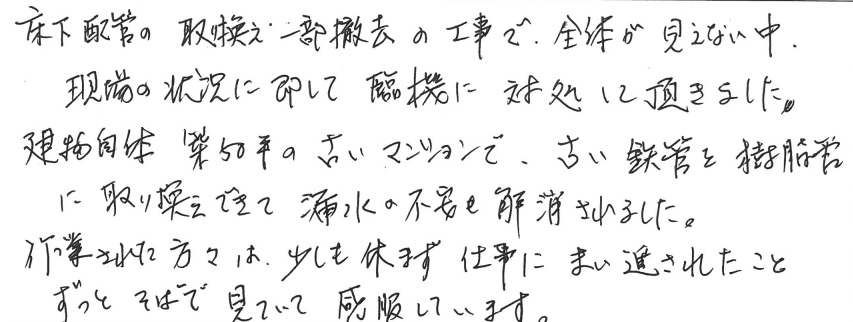 床下配管の取り換え・一部撤去の工事で、全体が見えない中、
現場の状況に即して臨機に対処して頂きました。
建物自体築50年の古いマンションで、古い鉄管を樹脂管
に取り換えできて漏水の不安も解消されました。
作業された方々は、少しも休まず仕事にまい進されたこと
ずっとそばで見ていて感服しています。